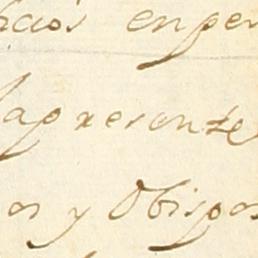 cios enper
lapresente
os y Obispos